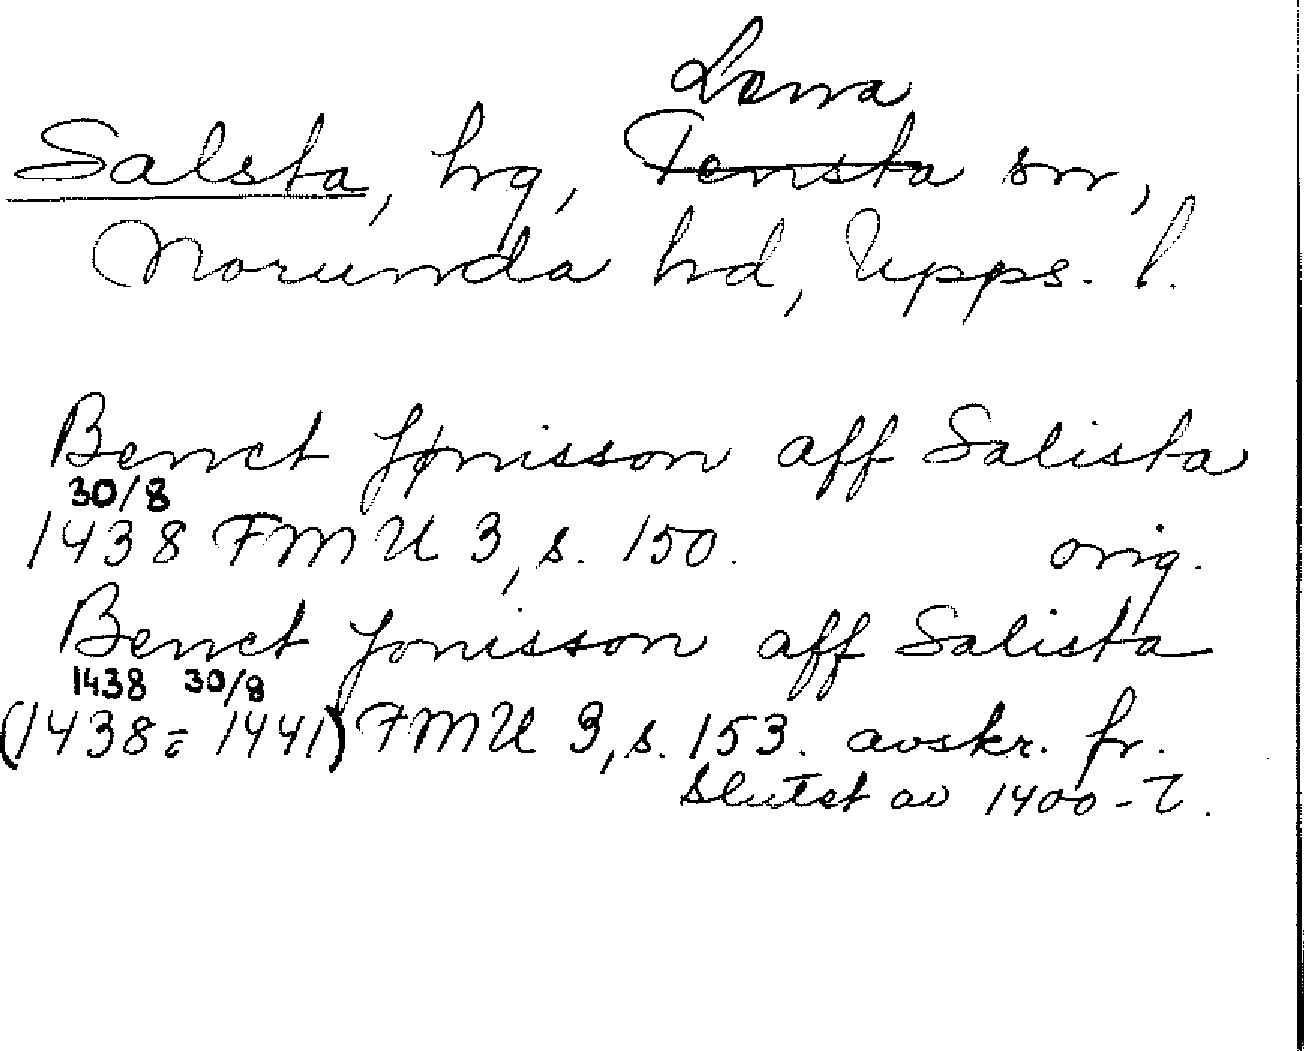 Lena
Salsta, hg, Tensta sn,
Norunda hd, Upps. l.
Benct Jønisson aff Salista
30/8
1438 FMU 3, s. 150. orig.
Benct Jonisson aff Salista
1438 30/8
(1438 = 1441) FMU 3, s. 153. avskr. fr.
slutet av 1400-t.